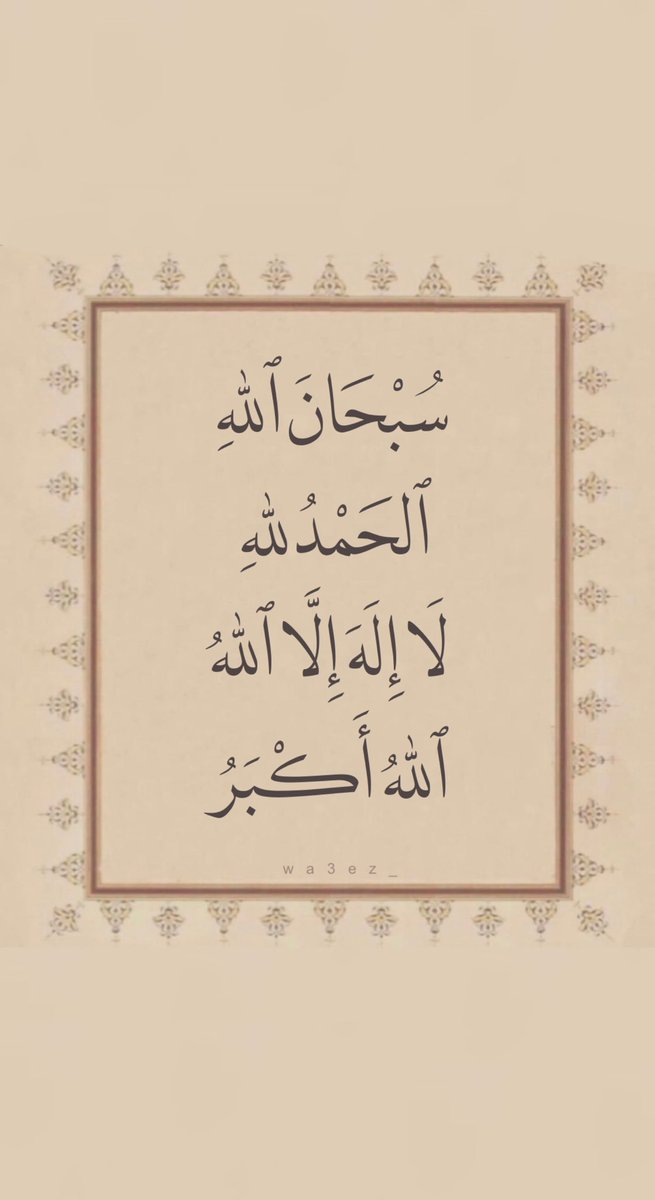 سُبْحَانَ ٱللهِ
ٱلحَمْدُ للهِ
لَا إِلَهَ إِلَّا ٱللهُ
ٱللهُ أَكْبَرُ
wa3ez_